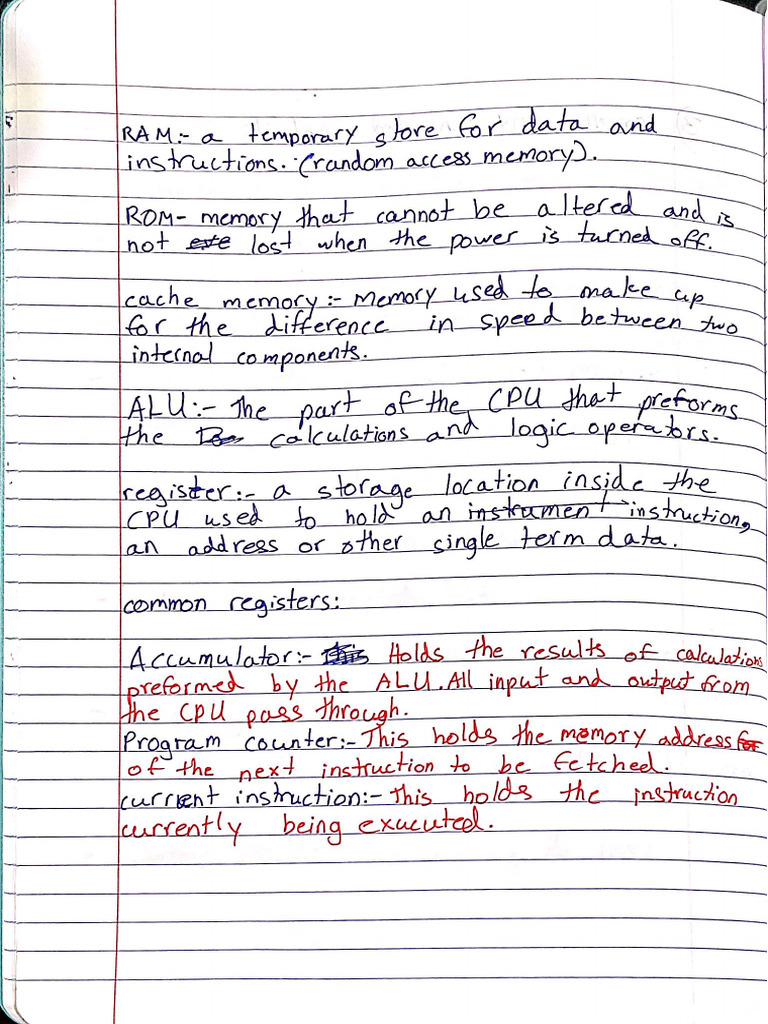 RAM:- a temporary store for data and
instructions. (random access memory).
ROM- memory that cannot be altered and is
not lost when the power is turned off.
cache memory:- memory used to make up
for the difference in speed between two
internal components.
ALU:- The part of the CPU that preforms
the calculations and logic operators.
register:- a storage location inside the
CPU used to hold an instrument instruction,
an address or other single term data.
common registers:
Accumulator:- Holds the results of calculations
preformed by the ALU. All input and output from
the CPU pass through.
Program counter:- This holds the memory address for
of the next instruction to be fetched.
current instruction:- This holds the instruction
currently being exucuted.